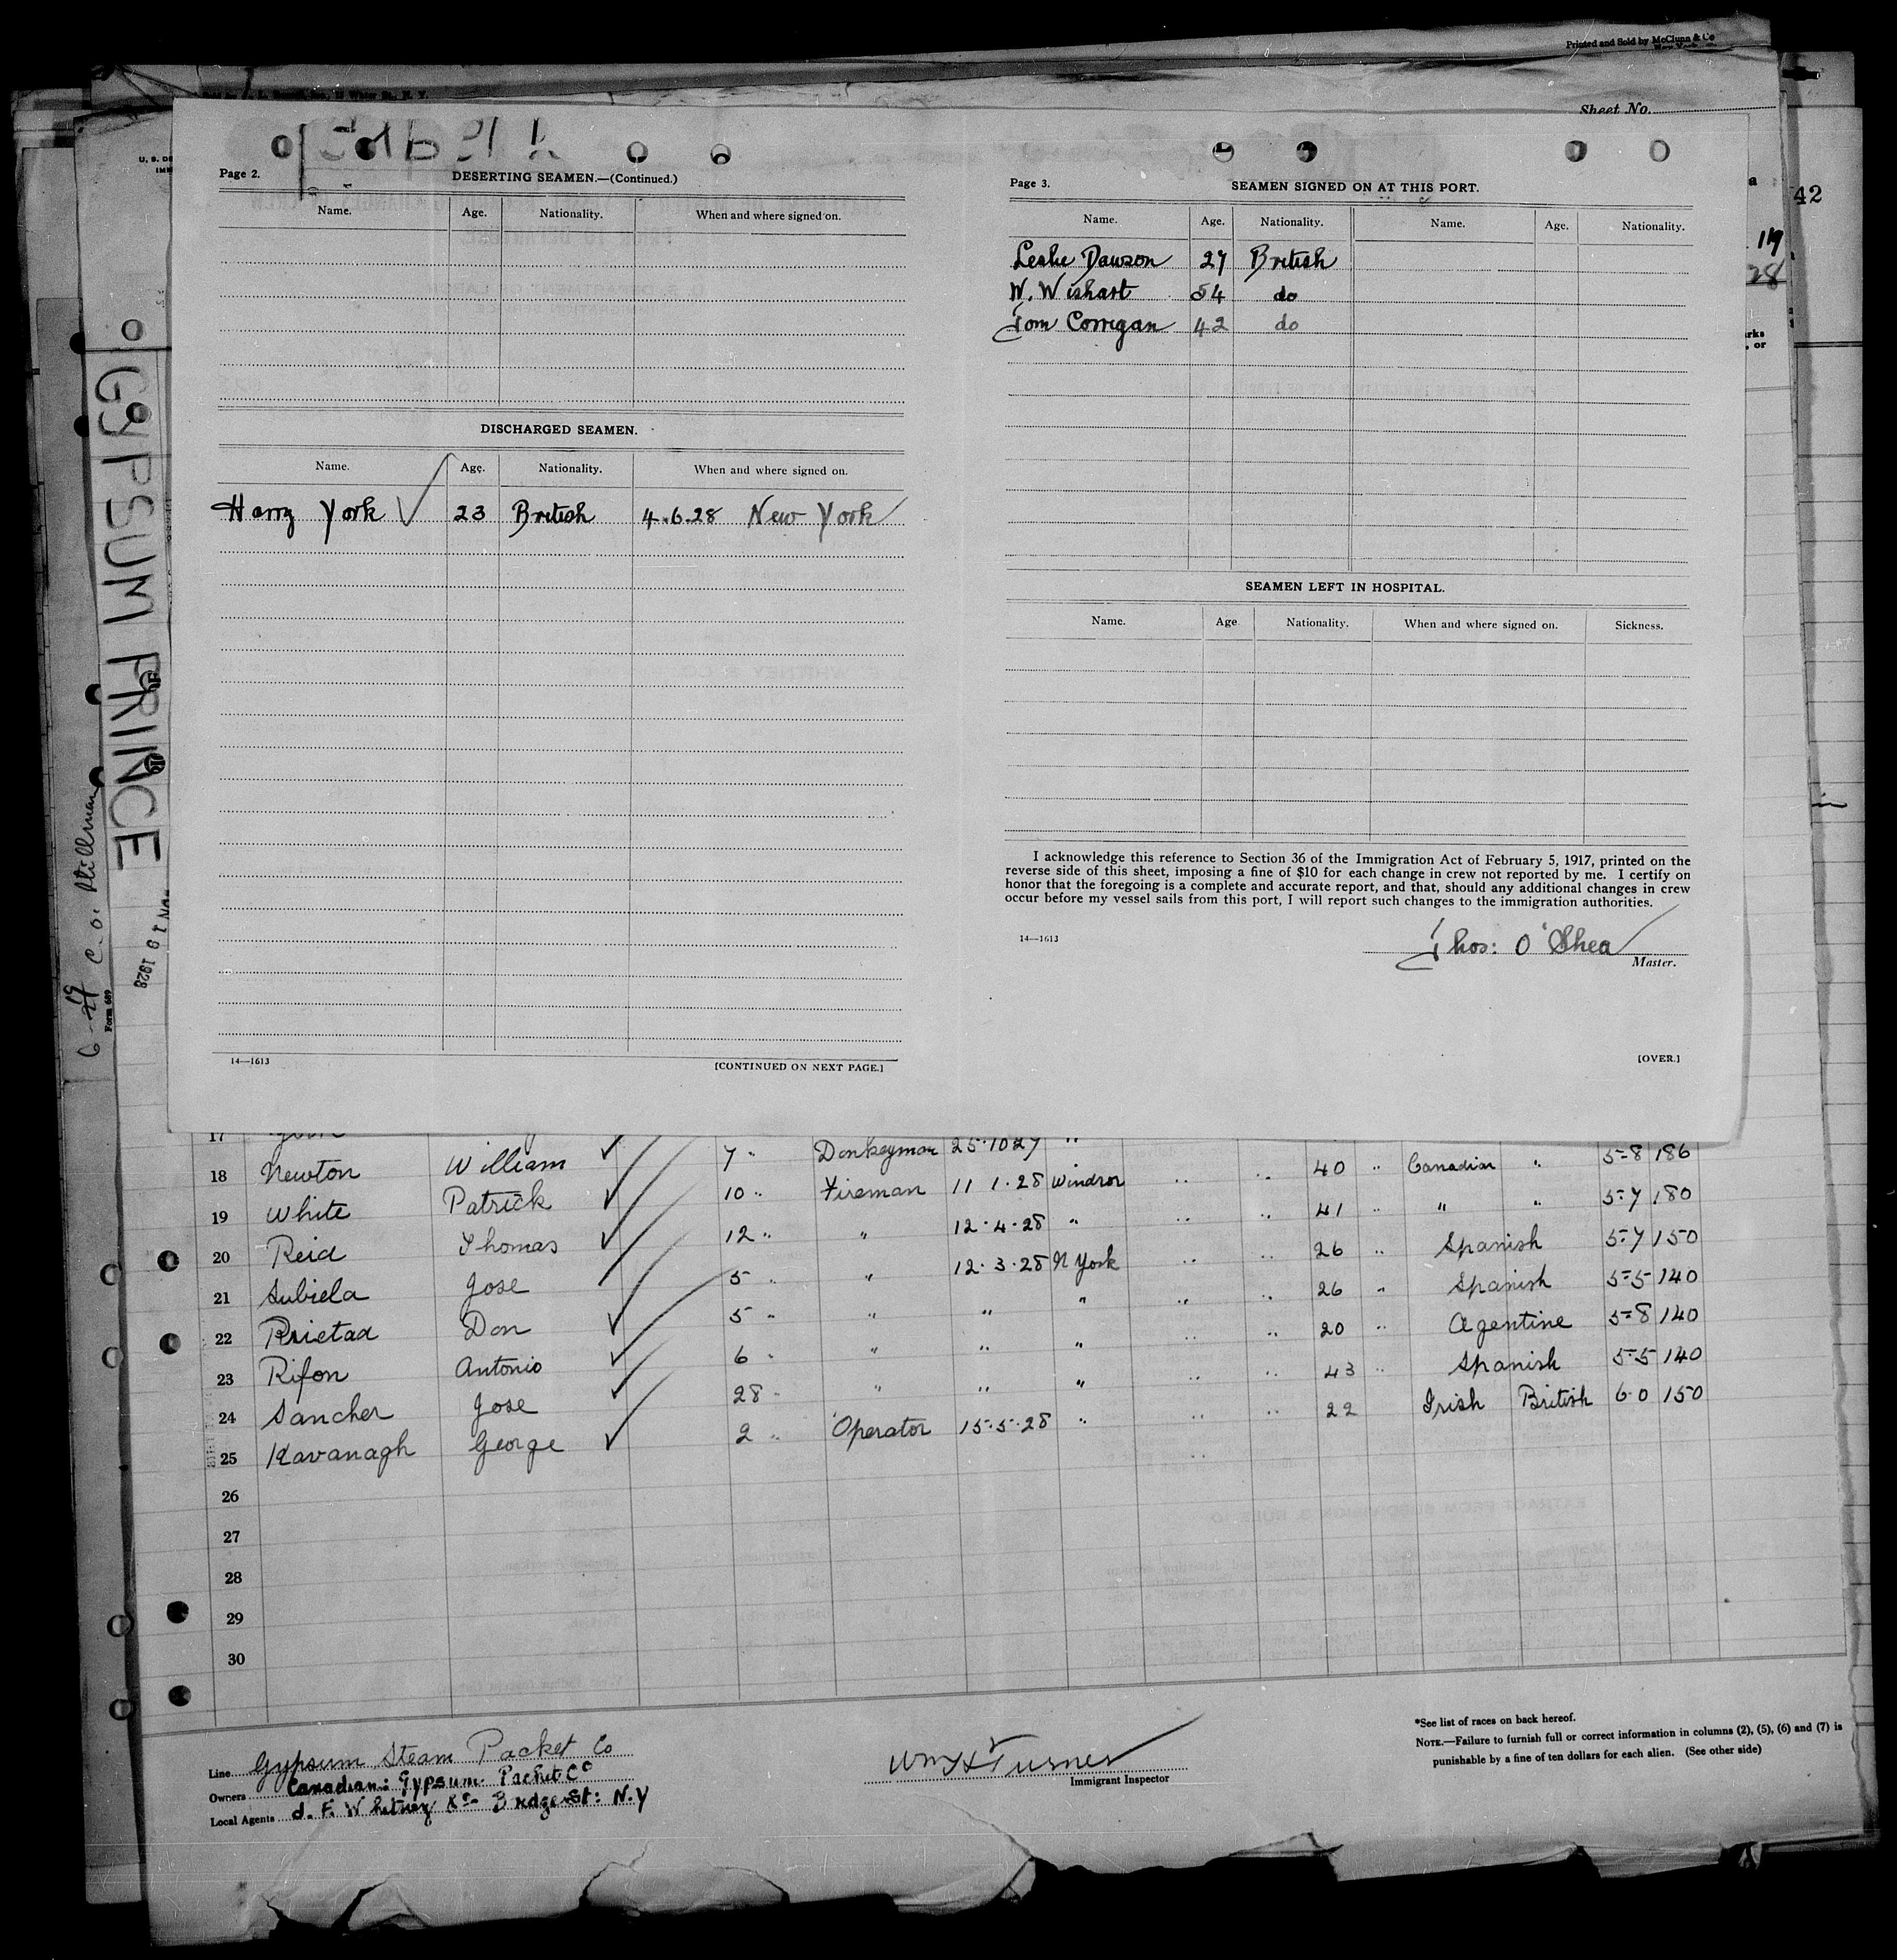 Printed and Sold by McClunn & Co
Sheet No.
42
119
28
Page 2.
DESERTING SEAMEN.—(Continued.)
Name. Age. Nationality. When and where signed on.
DISCHARGED SEAMEN.
Name. Age. Nationality. When and where signed on.
Harry York 23 British 4.6.28 New York
14—1613
[CONTINUED ON NEXT PAGE.]
Page 3.
SEAMEN SIGNED ON AT THIS PORT.
Name. Age. Nationality. Name. Age. Nationality.
Leslie Dawson 27 British
W. Wishart 54 do
Tom Corrigan 42 do
SEAMEN LEFT IN HOSPITAL.
Name. Age Nationality. When and where signed on. Sickness.
I acknowledge this reference to Section 36 of the Immigration Act of February 5, 1917, printed on the
reverse side of this sheet, imposing a fine of $10 for each change in crew not reported by me. I certify on
honor that the foregoing is a complete and accurate report, and that, should any additional changes in crew
occur before my vessel sails from this port, I will report such changes to the immigration authorities.
14—1613
Thos: O'Shea
Master.
[OVER.]
GYPSUM PRINCE
C. O. Stillman
Form 689
1928
17
18 Newton William 7 " Donkeyman 25.10.27 " 40 " Canadian " 5-8 186
19 White Patrick 10 " Fireman 11.1.28 Windsor " " 41 " " " 5-7 180
20 Reid Thomas 12 " " 12.4.28 " " " 26 " Spanish 5-7 150
21 Subiela Jose 5 " " 12.3.28 N York " " 26 " Spanish 5-5 140
22 Prietad Don 5 " " " " " " 20 " Agentine 5-8 140
23 Rifon Antonio 6 " " " " " " 43 " Spanish 5-5 140
24 Sancher Jose 28 " " " " " " 22 Irish British 6-0 150
25 Kavanagh George 2 " Operator 15-5-28 " "
26
27
28
29
30
Line Gypsum Steam Packet Co
Owners Canadian: Gypsum Packet Co
Local Agents J. F. Whitney & Co Bridge St: N.Y
Wm H Turner
Immigrant Inspector
*See list of races on back hereof.
NOTE.—Failure to furnish full or correct information in columns (2), (5), (6) and (7) is
punishable by a fine of ten dollars for each alien. (See other side)